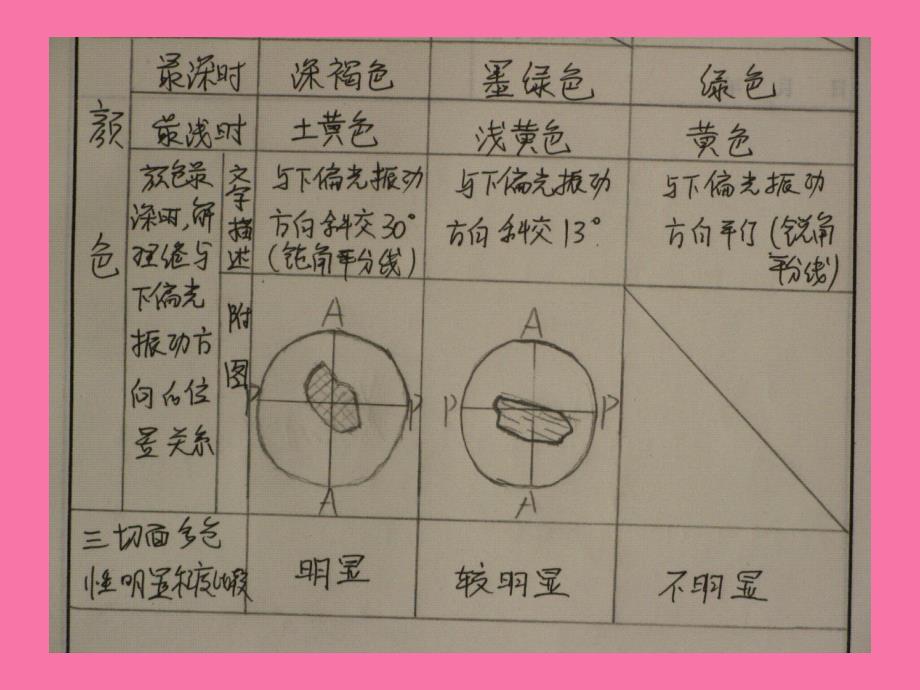 颜
色
最深时
深褐色
墨绿色
绿色
最浅时
土黄色
浅黄色
黄色
颜色最
深时,解
理缝与
下偏光
振动方
向的位
置关系
文字描述
与下偏光振动
方向斜交30°
(钝角平分线)
与下偏光振动
方向斜交13°
与下偏光振动
方向平行(锐角
平分线)
附图
A
P
P
A
A
P
P
A
三切面多色
性明显程度比较
明显
较明显
不明显